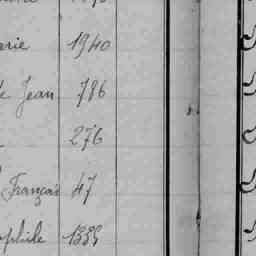 arie 1940
le Jean 786
276
François 47
ophile 1339